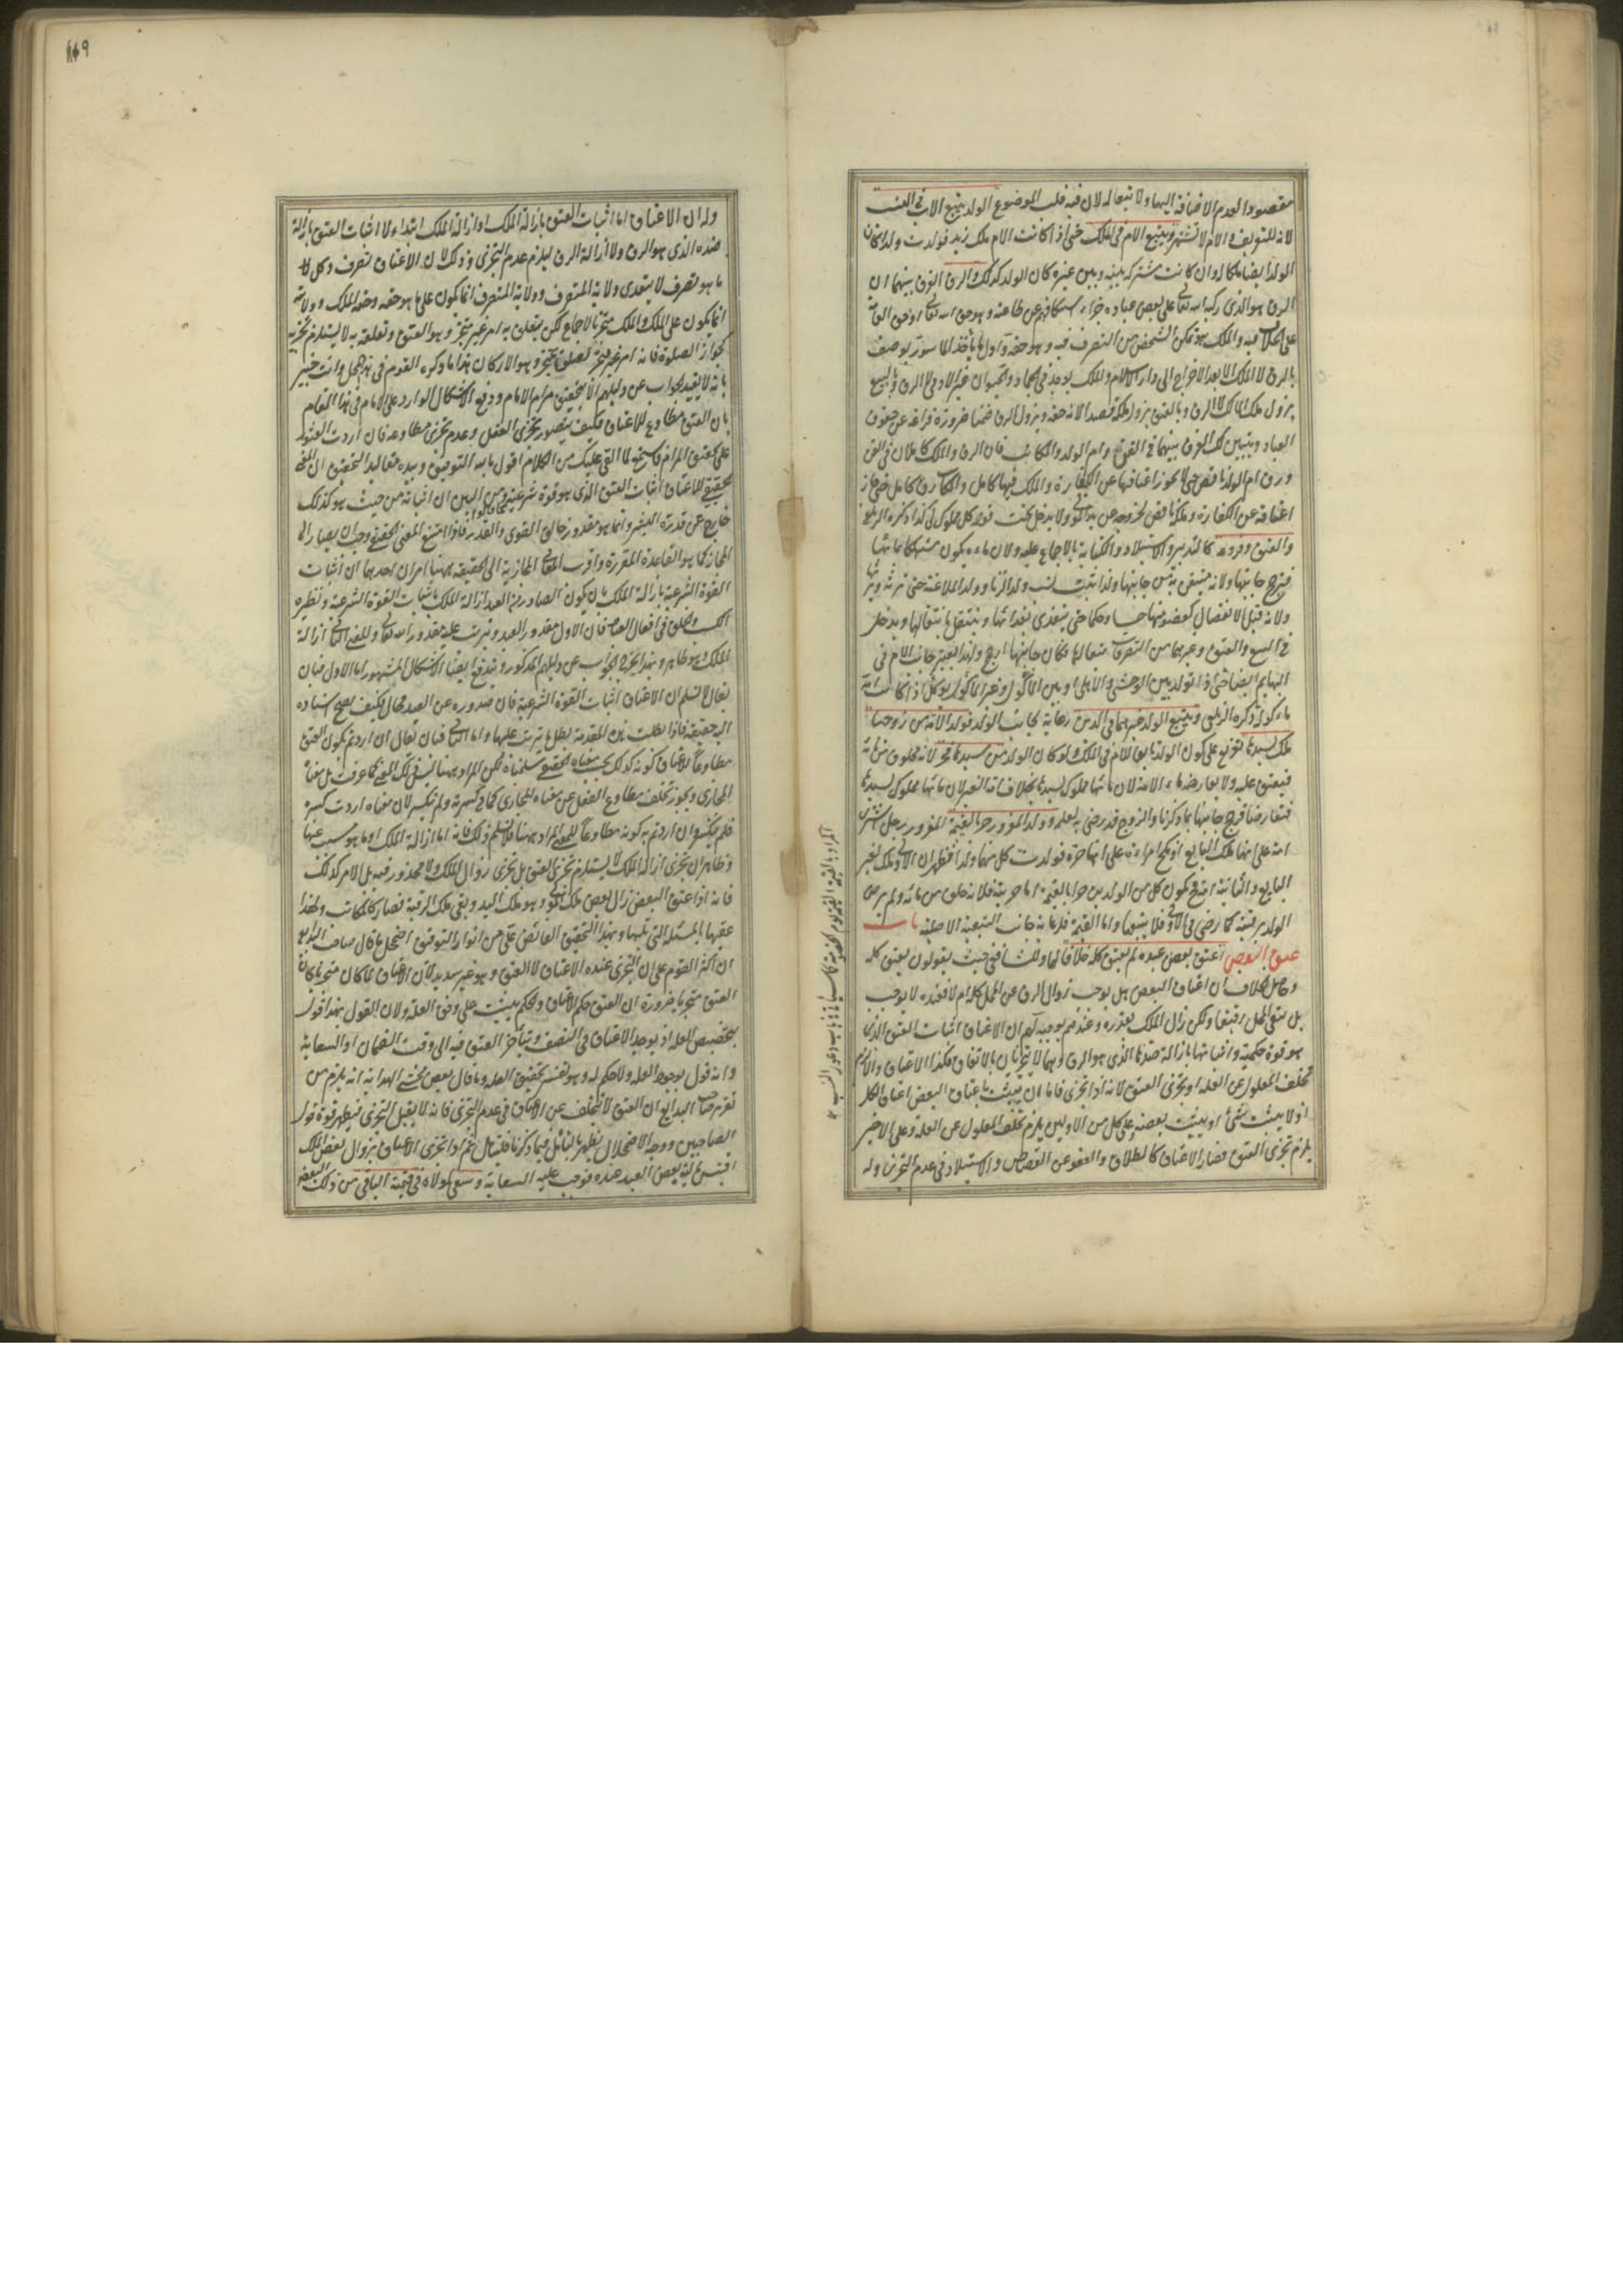 مقصودا لعدم الاضافة اليها ولا تبعا له لان فيه قلب الموضوع الولد يتبع الاب في النسب
لانه للتعريف والام لا تشتهر ويتبع الام في الملك حتى اذا كانت الام ملك زيد فولدت ولدا كان
الولد ايضا ملكا له وان كانت مشتركة بينه وبين غيره كان الولد كذلك والرق الفرق بينهما ان
الرق هو الذي ركبه الله تعالى على بعض عباده جزاء استنكافهم عن طاعته وهو حق الله تعالى او حق العامة
على الخلاف فيه والملك هو تمكن الشخص من التصرف فيه وهو حقه واول ما يأخذ الماسور يوصف
بالرق لا الملك الا بعد الاخراج الى دار الاسلام والملك يوجد في الجماد والحيوان غير الادمي لا الرق وبالبيع
يزول ملك المالك لا الرق وبالعتق يزول ملكه قصدا لانه حقه ويزول الرق ضمنا ضرورة فراغه عن حقوق
العباد ويتبين لك الفرق بينهما في القن وام الولد والمكاتب فان الرق والملك كاملان في القن
ورق ام الولد ناقص حتى لا يجوز اعتاقها عن الكفارة والملك فيها كامل والمكاتب رقه كامل حتى جاز
اعتاقه عن الكفارة وملكه ناقص لخروجه عن يد المولى ولا يدخل تحت قوله كل مملوك لي كذا ذكره الزيلعي
والعتق وفروعه كالتدبير والاستيلاد والكتابة بالاجماع عليه ولان ماءه يكون مستهلكا بمائها
فيرجح جانبها ولانه متيقن به من جانبها ولذا يثبت نسب ولد الزنا وولد الملاعنة حتى ترثه ويرثها
ولانه قبل الانفصال كعضو منها حسا وحكما حتى يتغذى بغذائها وينتقل بانتقالها ويدخل
في البيع والعتق وغيرهما من التصرفات تبعا لها فكان جانبها ارجح ولهذا يعتبر جانب الام في
البهائم ايضا حتى اذا تولد بين الوحشي والاهلي او بين المأكول وغير المأكول يؤكل اذا كانت امه
مأكولة ذكره الزيلعي ويتبع الولد خيرهما في الدين رعاية لجانب الولد فولد الامة من زوجها
ملك لسيدها تفريع على كون الولد تابعا للام في الملك ولو كان الولد من سيدها حر لانه مخلوق من مائه
فيعتق عليه ولا يعارضه ماء الامة لان مائها مملوك لسيدها بخلاف امة الغير لان مائها مملوك لسيدها
فتعارضا فرجح جانبها بما ذكرنا والزوج قد رضي به لعلمه وولد المغرور حر بالقيمة المغرور رجل اشترى
امة على انها ملك البايع او نكح امراة على انها حرة فولدت كل منهما ولدا فظهر ان الاولى ملك لغير
البايع والثانية امة فيكون كل من الولدين حرا بالقيمة اما حريته فلانه خلق من مائه ولم يرض
الولد برقيته كما رضي في الاول فلا يتبعها واما القيمة فلرعاية جانب التبعية الاصلية باب
عتق البعض اعتق بعض عبده لم يعتق كله خلافا لهما وللشافعي حيث يقولون يعتق كله
وحاصل الخلاف ان اعتاق البعض هل يوجب زوال الرق عن المحل كله ام لا فعنده لا يوجب
بل يبقى المحل رقيقا ولكن زال الملك بقدره وعندهم يوجبه لهم ان الاعتاق اثبات العتق الذي
هو قوة حكمية واثباتها بازالة ضدها الذي هو الرق وهما لا يتجزيان بالاتفاق فكذا الاعتاق والا لزم
تخلف المعلول عن العلة او تجزي العتق لانه اذا تجزى فاما ان يثبت باعتاق البعض اعتاق الكل
او لا يثبت شئ او يثبت بعضه وعلى كل من الاولين يلزم تخلف المعلول عن العلة وعلى الاخير
يلزم تجزي العتق فصار الاعتاق كالطلاق والعفو عن القصاص والاستيلاد في عدم التجزي وله
المراد بالقيمة القيمة يوم الخصومة كما سيأتي في باب دعوى النسب
١١٩
وله ان الاعتاق اما اثبات العتق بازالة الملك او ازالة الملك ابتداء لا اثبات العتق بازالة
ضده الذي هو الرق ولا ازالة الرق ليلزم عدم التجزي وذلك لان الاعتاق تصرف وكل
ما هو تصرف لا يتعدى ولاية المتصرف وولاية المتصرف انما يكون على ما هو حقه وحقه الملك وولايته
انما يكون على الملك والملك متجز بالاجماع لكن يتعلق به امر غير متجز وهو العتق وتعلقه به لا يستلزم تجزيه
كجواز الصلوة فانه امر غير متجز تعلق بمتجز وهو الاركان هذا ما ذكره القوم في هذا المحل وانت خبير
بانه لا يفيد الجواب عن دليلهم الا بتحقيق مرام الامام ودفع الاشكال الوارد على الامام في هذا المقام
بان العتق مطاوع للاعتاق فكيف يتصور تجزي الفعل وعدم تجزي مطاوعه فان اردت العثور
على تحقيق المرام فاستمع لما القي عليك من الكلام اقول بالله التوفيق وبيده مقاليد التحقيق ان المعنى
الحقيقي للاعتاق اثبات العتق الذي هو قوة شرعية ومن البين ان اثباته من حيث هو كذلك
خارج عن قدرة البشر وانما هو مقدور خالق القوى والقدر فاذا امتنع المعنى الحقيقي وجب ان يصار الى
المجاز كما هو القاعدة المقررة واقرب المعاني المجازية الى الحقيقة ههنا امران احدهما ان اثبات
القوة الشرعية بازالة الملك بان يكون الصادر من العبد ازالة الملك باثبات القوة الشرعية ونظيره
الكسب والخلق في افعال العباد فان الاول مقدور العبد ويترتب عليه مقدور الله تعالى والمعنى الثاني ازالة
الملك وهو ظاهر وبهذا يخرج الجواب عن دليلهم المذكور ويندفع ايضا الاشكال المشهور اما الاول فبان
يقال لا نسلم ان الاعتاق اثبات القوة الشرعية فان صدوره عن العبد محال فكيف يصح اسناده
اليه حقيقة فاذا بطلت هذه المقدمة بطل ما يترتب عليها واما الثاني فبان يقال ان اردتم بكون العتق
مطاوعا للاعتاق كونه كذلك بحسب معناه الحقيقي سلمناه لكن المراد ههنا ليس ذلك المعنى كما عرفت بل معناه
المجازي ويجوز تخلف مطاوع الفعل عن معناه المجازي كما في كسرته ولم ينكسر لان معناه اردت كسره
فلم ينكسر وان اردتم به كونه مطاوعا للمعنى المراد ههنا فلا نسلم ذلك فانه اما ازالة الملك او ما هو مسبب عنها
وظاهر ان تجزي ازالة الملك لا يستلزم تجزي العتق بل تجزي زوال الملك ولا محذور فيه بل الامر كذلك
فانه اذا عتق البعض زال بعض ملك المولى وهو ملك اليد وبقي ملك الرقبة فصار كالمكاتب ولهذا
عقبها بالمسئلة التي تليها وبهذا التحقيق الفائض علي من انوار التوفيق اضمحل ما قال صاحب البدايع
ان اكثر القوم على ان التجزي عنده الاعتاق لا العتق وهو غير سديد لان الاعتاق لما كان متجزيا كان
العتق متجزيا ضرورة ان العتق حكم الاعتاق والحكم يثبت على وفق العلة ولان القول بهذا قول
بتخصيص العلة اذ يوجد الاعتاق في النصف ويتأخر العتق فيه الى وقت الضمان او السعاية
وانه قول بوجود العلة ولا حكم له وهو تفسير تخصيص العلة وما قال بعض محشي الهداية انه يلزم من
تقرير صاحب البدايع ان العتق لا يتخلف عن الاعتاق في عدم التجزي فانه لا يقبل التجزي فيظهر قوة قول
الصاحبين ووجه الاضمحلال يظهر بالتأمل فيما ذكرنا فتأمل ثم اذا تجزى الاعتاق بزوال بعض الملك
احتبس مالية بعض العبد عنده فوجب عليه السعاية وسعى لمولاه في قيمة الباقي من ذلك البعض